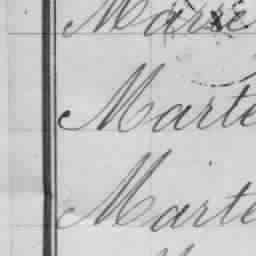 Marie
Marte
Marte